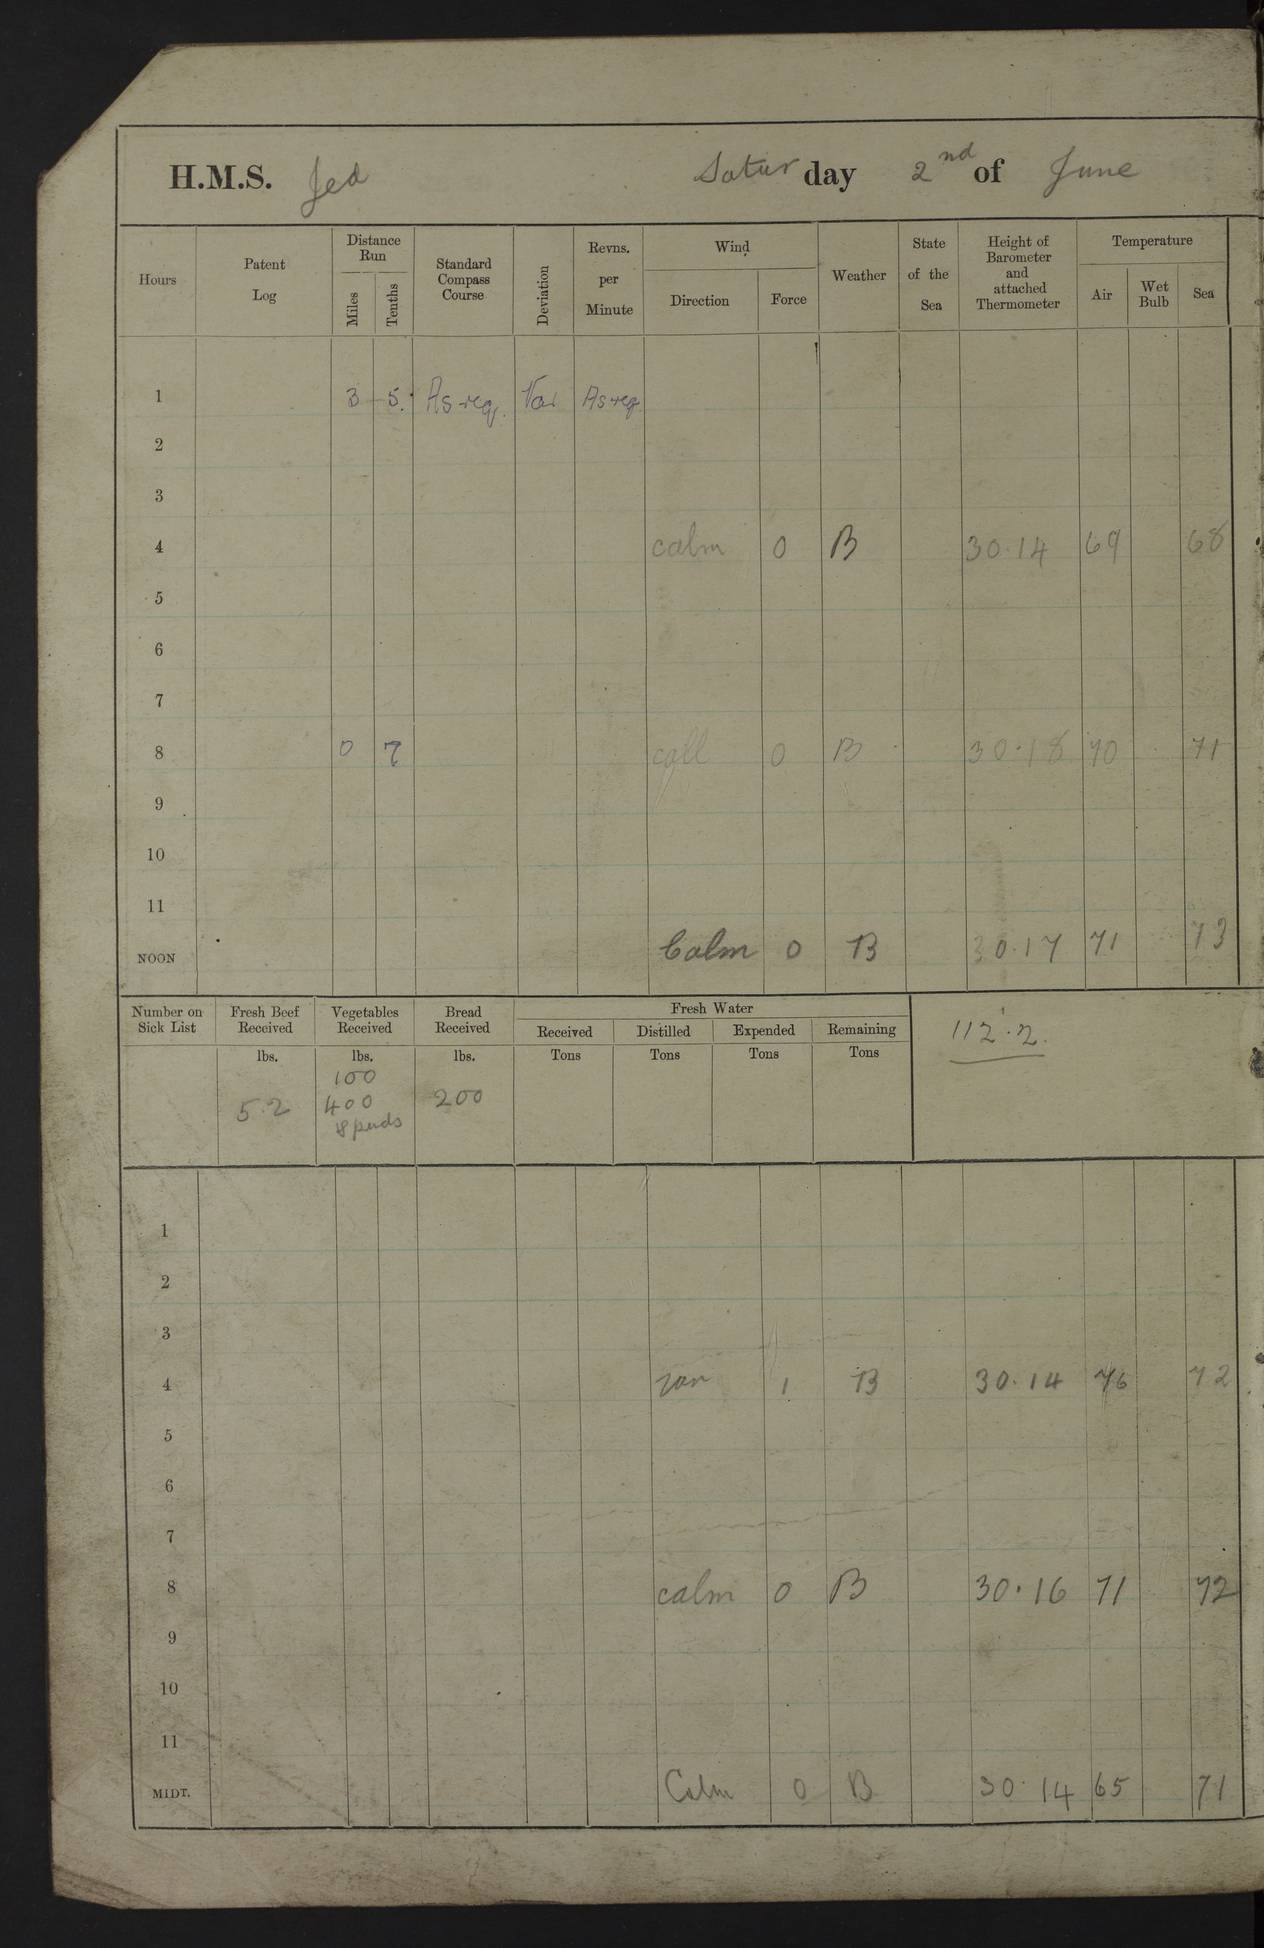 H.M.S. Jed Saturday 2nd of June
Hours Patent Log Distance Run Miles Tenths Standard Compass Course Deviation Revns. per Minute Wind Direction Force Weather State of the Sea Height of Barometer and attached Thermometer Temperature Air Wet Bulb Sea
1 3 5. As req. Var As req
2
3
4 calm 0 B 30.14 69 68
5
6
7
8 0 7 0 B 30.18 70 71
9
10
11
NOON Calm 0 B 30.17 71 73
Number on Sick List Fresh Beef Received Vegetables Received Bread Received Fresh Water
Received Distilled Expended Remaining
lbs. lbs. lbs. Tons Tons Tons Tons
112.2.
100
52 400 200
spuds
1
2
3
4 1 B 30.14 76 72
5
6
7
8 calm 0 B 30.16 71 72
9
10
11
MIDT. Calm 0 B 30.14 65 71